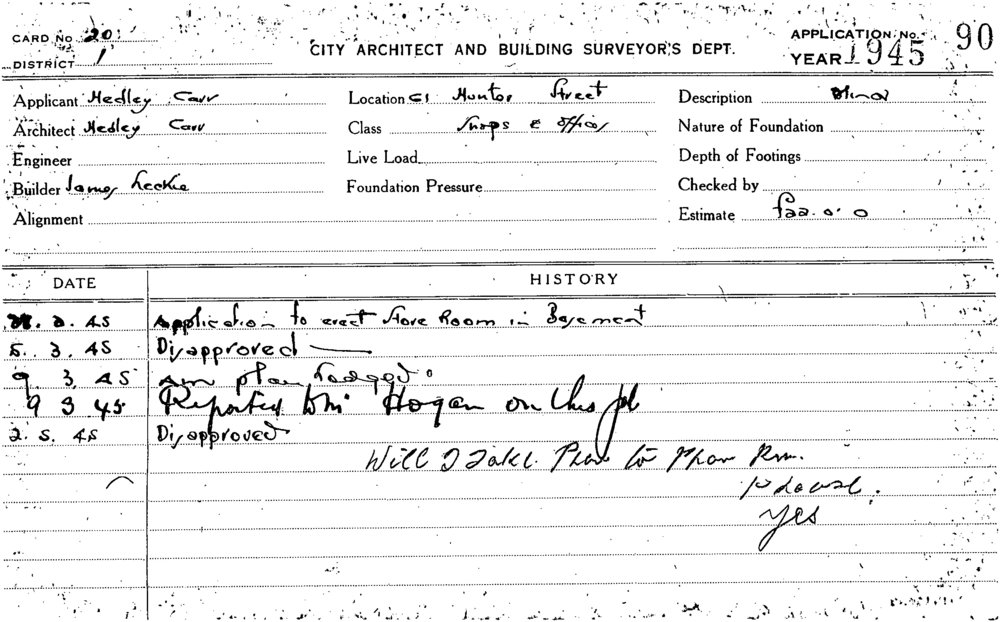 CARD No 20
DISTRICT 1
CITY ARCHITECT AND BUILDING SURVEYOR'S DEPT.
APPLICATION No. 90
YEAR 1945
Applicant Hedley Carr
Location Hunter Street
Description Minor
Architect Hedley Carr
Class Shops & offices
Nature of Foundation
Engineer
Live Load
Depth of Footings
Builder James Leckie
Foundation Pressure
Checked by
Alignment
Estimate £22.0.0
DATE HISTORY
2. 45 Application to erect Store Room in Basement
5. 3. 45 Disapproved
9 3 45 am plan Lodged.
9 3 45 Reported to Mr Hogan on this job
2. 5. 45 Disapproved
Will I take Plan to Plan Rm.
please.
Yes